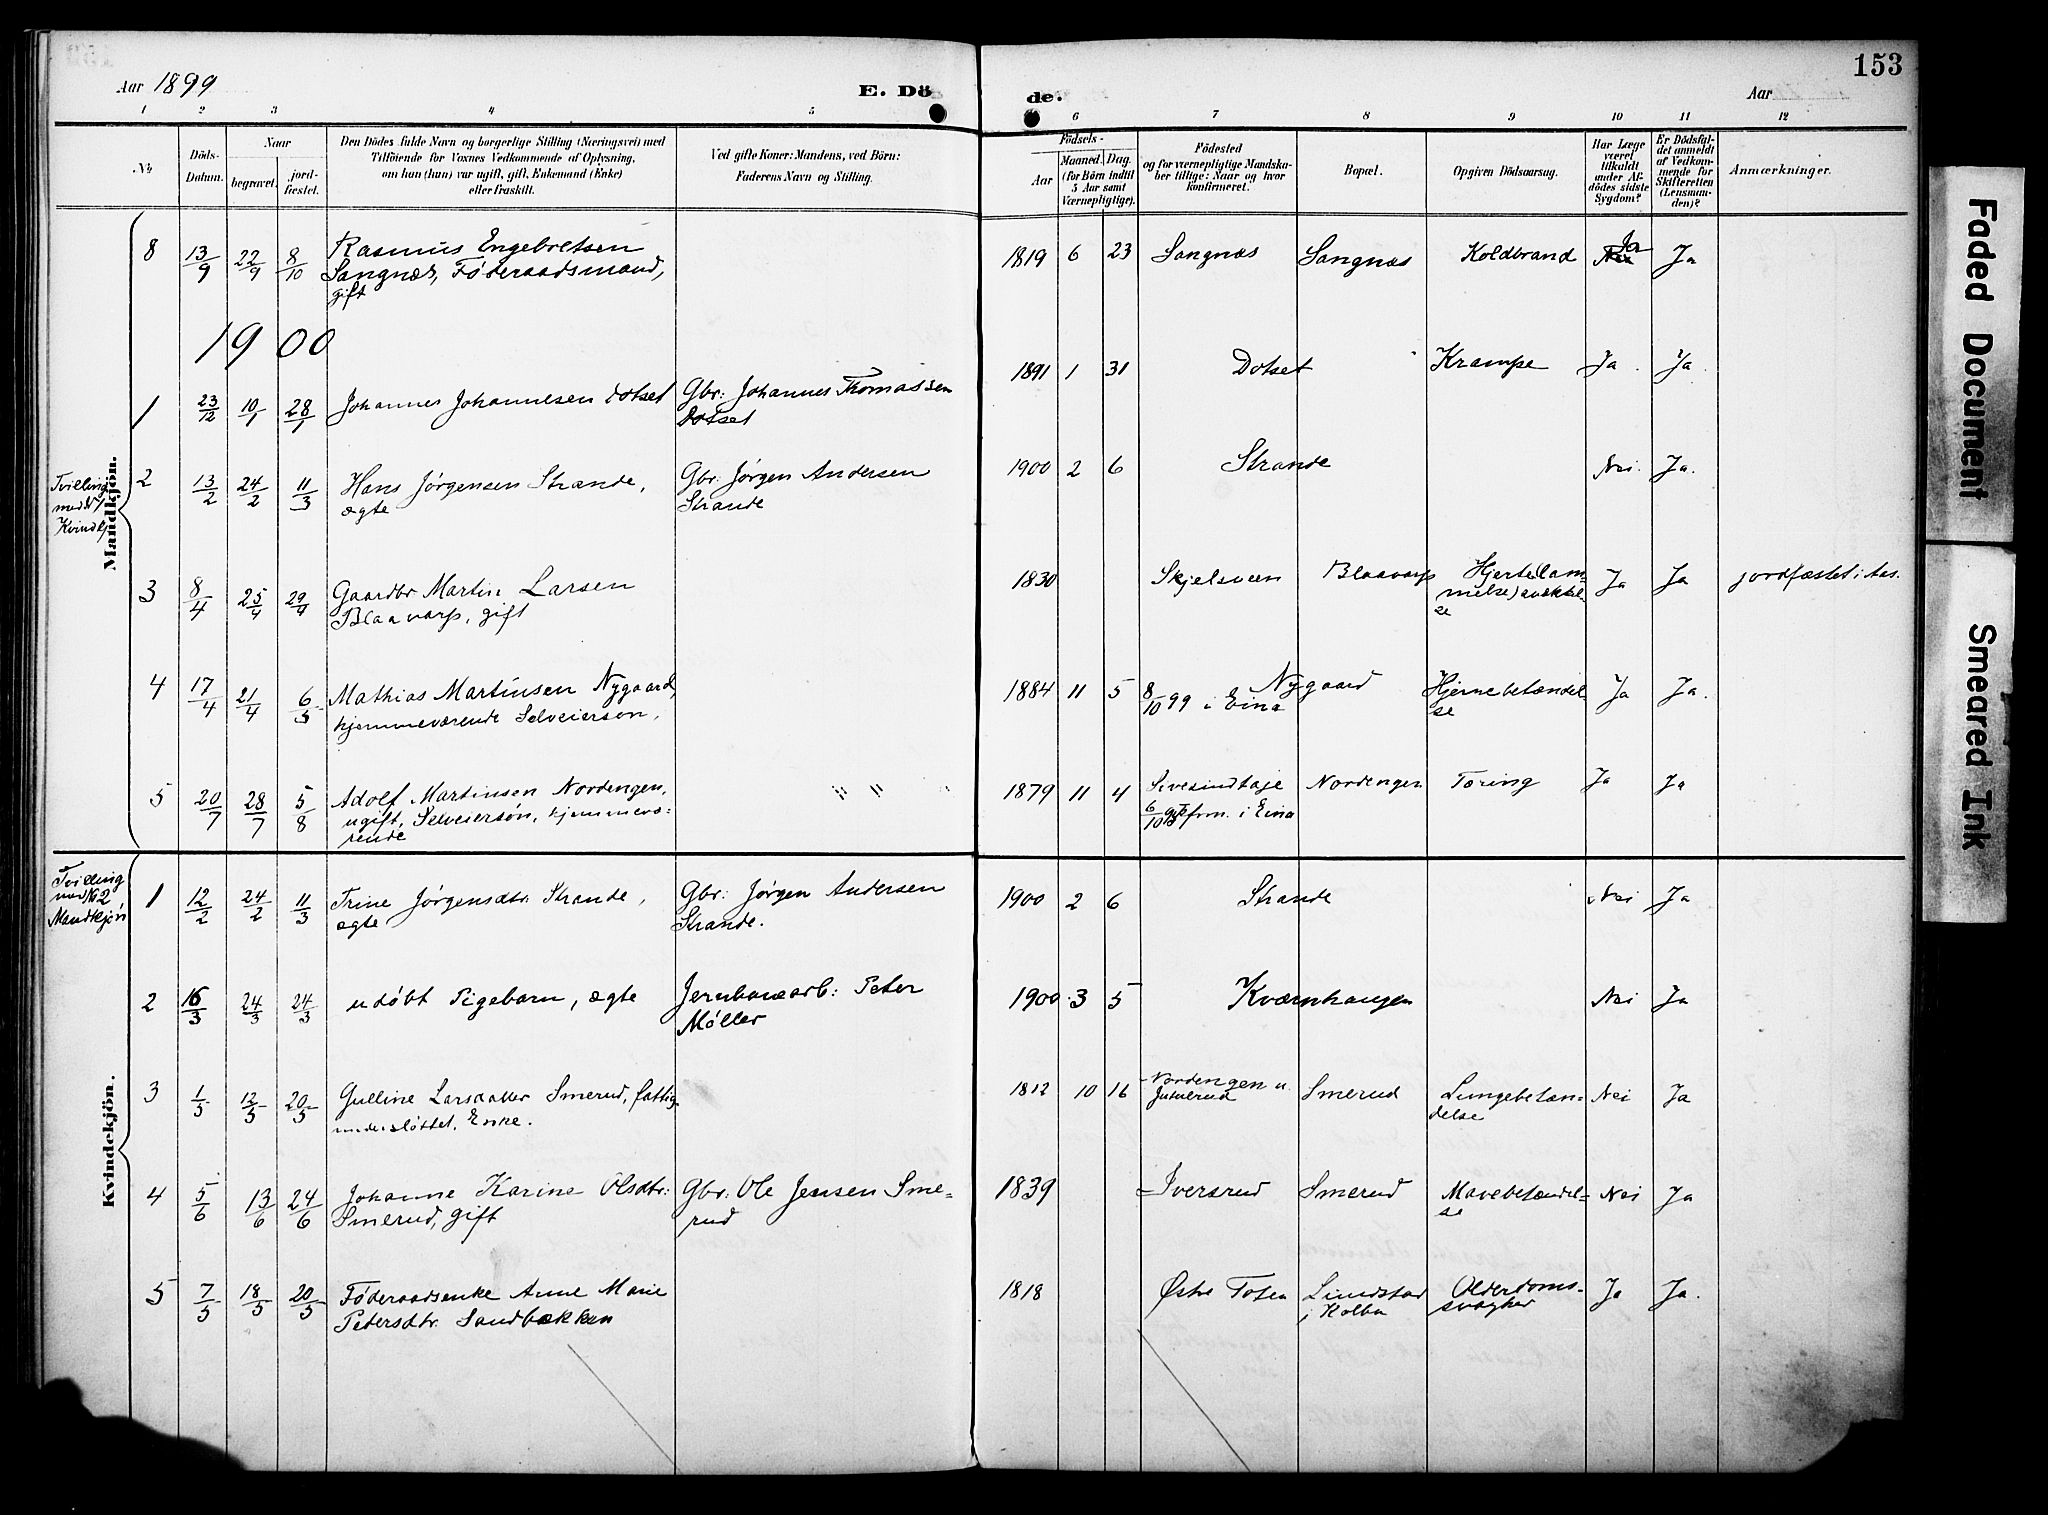 153
Aar 1899
E. Dö
de.
Aar
1 2 3 4 5 6 7 8 9 10 11 12
No
Döds-
Datum.
Naar
begravet.
jord-
fæstet.
Den Dödes fulde Navn og borgerlige Stilling (Næringsvei) med
Tilföiende for Voxnes Vedkommende af Oplysning,
om han (hun) var ugift, gift, Enkemand (Enke)
eller fraskilt.
Ved gifte Koner: Mandens, ved Börn:
Faderens Navn og Stilling.
Födsels-
Aar
Maaned. Dag.
(for Börn indtil
5 Aar samt
Værnepligtige).
Födested
og for værnepligtige Mandska-
ber tillige: Naar og hvor
konfirmeret.
Bopæl.
Opgiven Dödsaarsag.
Har Læge
været
tilkaldt
under Af-
dödes sidste
Sygdom?
Er Dödsfal-
det anmeldt
af Vedkom-
mende for
Skifteretten
(Lensman-
den)?
Anmærkninger.
Mandkjön.
8 13/9 22/9 8/10 Rasmus Engebretsen
Sangnæs, Føderaadsmand,
gift
1819 6 23 Sangnæs Sangnæs Koldbrand Ja Ja
1900
1 23/12 10/1 28/1 Johannes Johannesen Dotset Gbr: Johannes Thomassen
Dotset
1891 1 31 Dotset Krampe Ja Ja
Tvilling
med N 1
Kvindekj
2 13/2 24/2 11/3 Hans Jørgensen Strande, Gbr: Jørgen Andersen
ægte Strande
1900 2 6 Strande Nei. Ja.
3 8/4 25/4 29/4 Gaardbr Martin Larsen
Blaavarp, gift
1830 Skjelsveen Blaavarp Hjerte(lam- Ja Ja jordfæstet i Aas.
melse) svækkel-
se
4 17/4 21/4 6/5 Mathias Martinsen Nygaard,
hjemmeværende Selveiersøn,
1884 11 5 8/10 99 i Eina Nygaard Hjernebetændel- Ja Ja.
se
5 20/7 28/7 5/8 Adolf Martinsen Nordengen, " "
ugift, Selveiersøn, hjemmevæ-
rende
1879 11 4 Sivesindtajе Nordengen Tæring Ja Ja
i Eina
Kvindekjön.
Tvilling
med No 2
Mandkjøn
1 12/2 24/2 11/3 Trine Jørgensdtr. Strande, Gbr: Jørgen Andersen
ægte Strande.
1900 2 6 Strande Nei Ja
2 16/3 24/3 24/3 udøbt Pigebarn, ægte Jernbanearb: Peter
Møller
1900 3 5 Kværnhaugen Nei Ja
3 1/5 12/5 20/5 Gulline Larsdatter Smerud, fattig-
understøttet, Enke.
1812 10 16 Nordengen u. Smerud Lungebetæn- Nei Ja
Jutulrud delse
4 5/6 13/6 24/6 Johanne Karine Olsdtr: Gbr: Ole Jensen Sme-
Smerud, gift rud
1839 Iversrud Smerud Mavebetændel- Nei Ja
se
5 7/5 18/5 20/5 Føderaadsenke Anne Marie
Petersdtr. Sandbækken
1818 Østre Toten Lundstad Alderdoms- Ja Ja.
i Kolbu svaghed
Faded Document
Smeared Ink